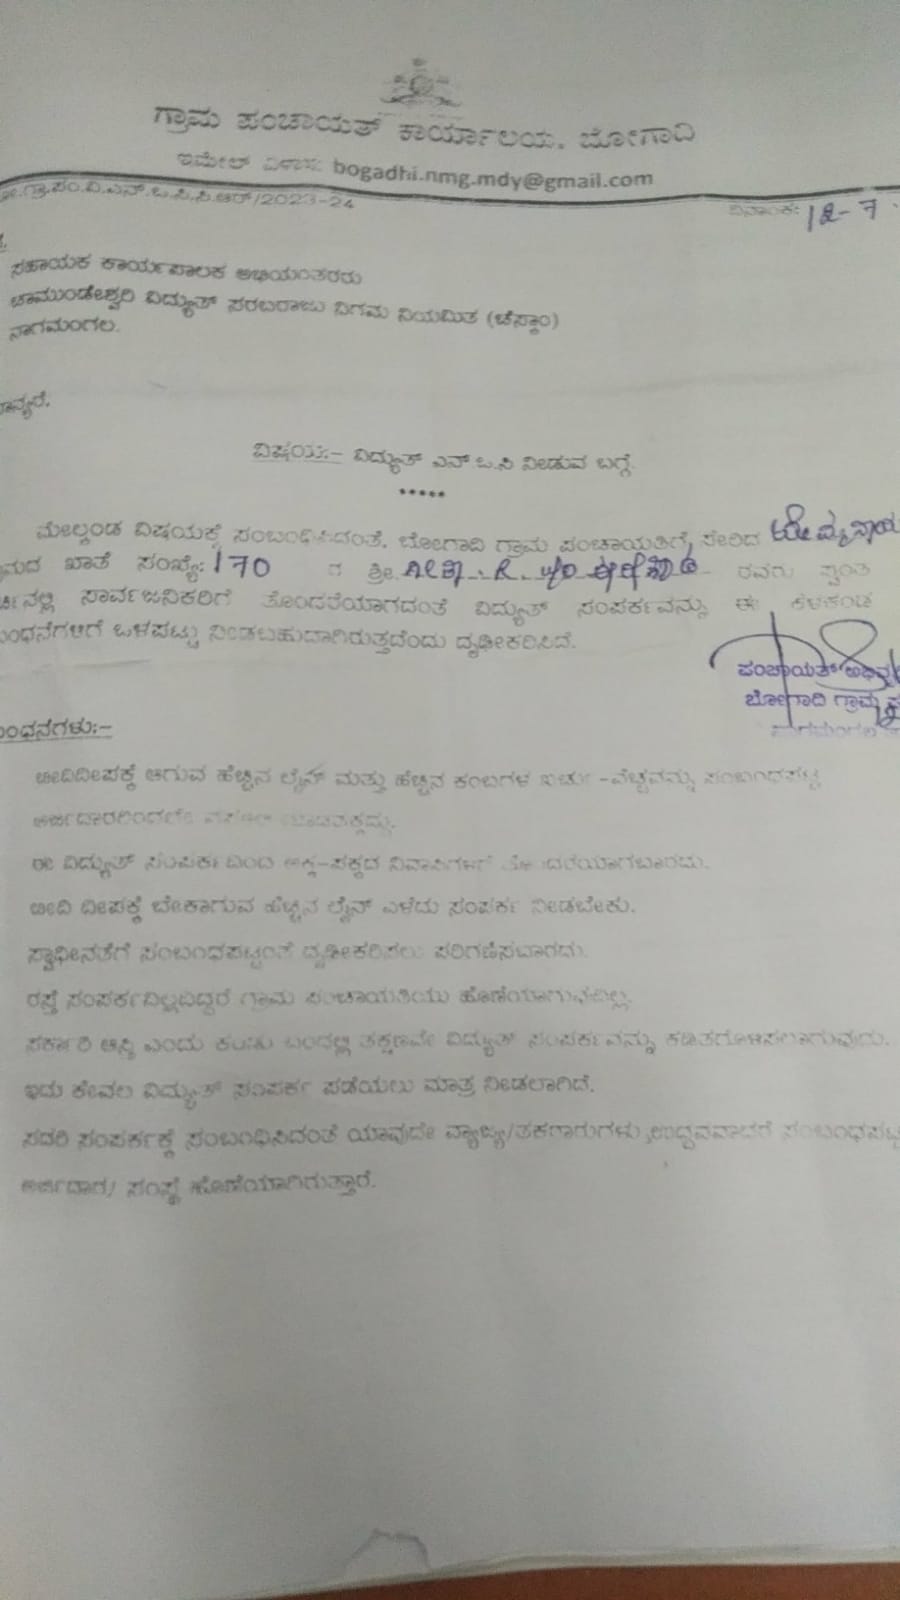 ಗ್ರಾಮ ಪಂಚಾಯತ್ ಕಾರ್ಯಾಲಯ, ಬೋಗಾದಿ
ಇಮೇಲ್ ವಿಳಾಸ: bogadhi.nmg.mdy@gmail.com
ಗ್ರಾ.ಪಂ.ವಿ.ಎನ್.ಒ.ಸಿ.ಸಿ.ಆರ್/2023-24 ದಿನಾಂಕ: 12-7
ಸಹಾಯಕ ಕಾರ್ಯಪಾಲಕ ಅಭಿಯಂತರರು
ಚಾಮುಂಡೇಶ್ವರಿ ವಿದ್ಯುತ್ ಸರಬರಾಜು ನಿಗಮ ನಿಯಮಿತ (ಚೆಸ್ಕಾಂ)
ನಾಗಮಂಗಲ.
ವಿಷಯ:- ವಿದ್ಯುತ್ ಎನ್.ಒ.ಸಿ ನೀಡುವ ಬಗ್ಗೆ.
*****
ಮೇಲ್ಕಂಡ ವಿಷಯಕ್ಕೆ ಸಂಬಂಧಿಸಿದಂತೆ, ಬೋಗಾದಿ ಗ್ರಾಮ ಪಂಚಾಯತಿಗೆ ಸೇರಿದ
ಖಾತೆ ಸಂಖ್ಯೆ: 170 ರ ಶ್ರೀ. ರವರು ಸ್ವಂತ
ಸಾರ್ವಜನಿಕರಿಗೆ ತೊಂದರೆಯಾಗದಂತೆ ವಿದ್ಯುತ್ ಸಂಪರ್ಕವನ್ನು ಈ ಕೆಳಕಂಡ
ಒಳಪಟ್ಟು ನೀಡಬಹುದಾಗಿರುತ್ತದೆಂದು ದೃಢೀಕರಿಸಿದೆ.
ಪಂಚಾಯತ್
ಬೋಗಾದಿ ಗ್ರಾಮ
ನಾಗಮಂಗಲ
ಬೀದಿದೀಪಕ್ಕೆ ಆಗುವ ಹೆಚ್ಚಿನ ಲೈನ್ ಮತ್ತು ಹೆಚ್ಚಿನ ಕಂಬಗಳ ಖರ್ಚು-ವೆಚ್ಚವನ್ನು ಸಂಬಂಧಪಟ್ಟ
ಅರ್ಜಿದಾರರಿಂದಲೇ
ಈ ವಿದ್ಯುತ್ ಸಂಪರ್ಕದಿಂದ ಅಕ್ಕ-ಪಕ್ಕದ ನಿವಾಸಿಗಳಿಗೆ ತೊಂದರೆಯಾಗಬಾರದು.
ಬೀದಿ ದೀಪಕ್ಕೆ ಬೇಕಾಗುವ ಹೆಚ್ಚಿನ ಲೈನ್ ಎಳೆದು ಸಂಪರ್ಕ ನೀಡಬೇಕು.
ಸ್ವಾಧೀನತೆಗೆ ಸಂಬಂಧಪಟ್ಟಂತೆ ದೃಢೀಕರಿಸಲು ಪರಿಗಣಿಸಲಾಗದು.
ರಸ್ತೆ ಸಂಪರ್ಕವಿಲ್ಲದಿದ್ದರೆ ಗ್ರಾಮ ಪಂಚಾಯತಿಯು ಹೊಣೆಯಾಗುವುದಿಲ್ಲ.
ಸರ್ಕಾರಿ ಆಸ್ತಿ ಎಂದು ಕಂಡು ಬಂದಲ್ಲಿ ತಕ್ಷಣವೇ ವಿದ್ಯುತ್ ಸಂಪರ್ಕವನ್ನು ಕಡಿತಗೊಳಿಸಲಾಗುವುದು.
ಇದು ಕೇವಲ ವಿದ್ಯುತ್ ಸಂಪರ್ಕ ಪಡೆಯಲು ಮಾತ್ರ ನೀಡಲಾಗಿದೆ.
ಸದರಿ ಸಂಪರ್ಕಕ್ಕೆ ಸಂಬಂಧಿಸಿದಂತೆ ಯಾವುದೇ ವ್ಯಾಜ್ಯ/ತಕರಾರುಗಳು ಉದ್ಭವವಾದರೆ ಸಂಬಂಧಪಟ್ಟ
ಅರ್ಜಿದಾರ/ ಸಂಸ್ಥೆ ಹೊಣೆಯಾಗಿರುತ್ತಾರೆ.